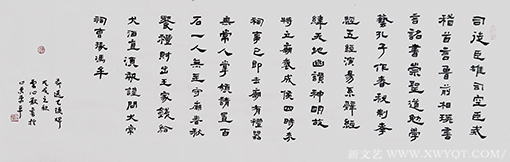 司徒臣雄司空臣戒
稽首言魯前相瑛書
言詔書崇聖道勉學
藝孔子作春秋制孝
經五經演易系辭經
緯天地幽讚神明故
特立廟褒成侯四時来
祠事已即去廟有禮器
無常人掌領請置百
石一人典主守廟春秋
饗禮財出王家錢給
犬酒直謹問大常
祠曹掾馮牟
節選乙瑛碑
戊戌立秋
新文艺 www.XWYQT.com